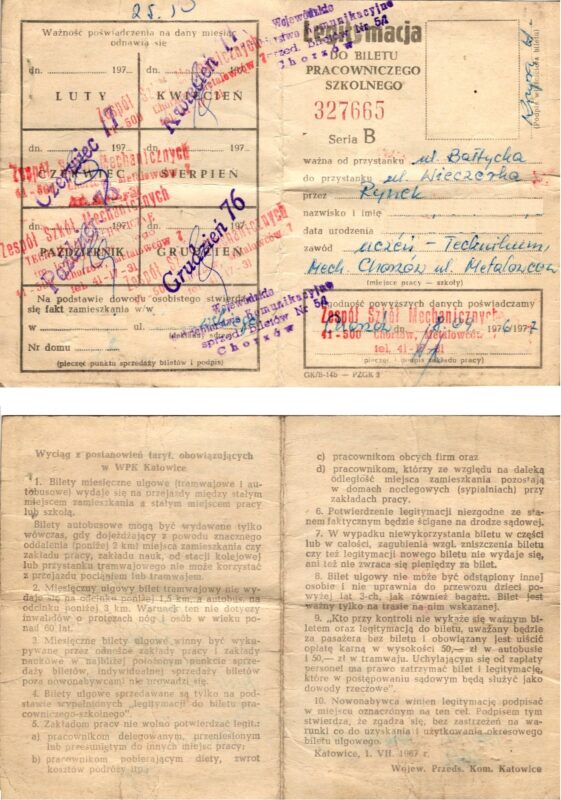 25.10
Ważność poświadczenia na dany miesiąc
odnawia się
dn. 197
dn. 197
LUTY
KWIECIEŃ
Kwiecień 77
dn. 197
dn. 197
CZERWIEC
SIERPIEŃ
Czerwiec 77
dn. 197
dn. 197
PAŹDZIERNIK
GRUDZIEŃ
Grudzień 76
Zespół Szkół Mechanicznych
41-500 Chorzów, Metalowców 7
Na podstawie dowodu osobistego stwierdza
się fakt zamieszkania w/w
w ul.
(dokładny adres)
Nr domu
(pieczęć punktu sprzedaży biletów i podpis)
Wojewódzkie
Przedsiębiorstwo Komunikacyjne
sprzed. Biletów Nr 54
Chorzów
Legitymacja
DO BILETU
PRACOWNICZEGO
SZKOLNEGO
327665
Seria B
ważna od przystanku ul. Bałtycka
do przystanku ul. Wieczorka
przez Rynek
nazwisko i imię
data urodzenia
zawód uczeń – Technikum
Mech. Chorzów ul. Metalowców
(miejsce pracy — szkoły)
Zgodność powyższych danych poświadczamy
Zespół Szkół Mechanicznych
Chorzów dn. 18.09 1976/197
41-500 Chorzów, Metalowców 7
tel. 41-17-31
(pieczęć i podpis zakładu pracy)
GK/S-145 — PZGK 3
Wyciąg z postanowień taryf. obowiązujących
w WPK Katowice
1. Bilety miesięczne ulgowe (tramwajowe i au-
tobusowe) wydaje się na przejazdy między stałym
miejscem zamieszkania a stałym miejscem pracy
lub szkołą.
Bilety autobusowe mogą być wydawane tylko
wówczas, gdy dojeżdżający z powodu znacznego
oddalenia (poniżej 2 km) miejsca zamieszkania czy
zakładu pracy, zakładu nauk, od stacji kolejowej
lub przystanku tramwajowego nie może korzystać
z przejazdu pociągiem lub tramwajem.
2. Miesięczny ulgowy bilet tramwajowy nie wy-
daje się na odcinku poniżej 1,5 km, a autobus. na
odcinku poniżej 3 km. Warunek ten nie dotyczy
inwalidów o protezach nóg i osób w wieku po-
nad 60 lat.
3. Miesięczne bilety ulgowe winny być wyku-
pywane przez odnośne zakłady pracy i zakłady
naukowe w najbliżej położonym punkcie sprze-
daży biletów, indywidualnej sprzedaży biletów
poza nowonabywcami nie prowadzi się.
4. Bilety ulgowe sprzedawane są tylko na pod-
stawie wypełnionych „legitymacji do biletu pra-
cowniczego-szkolnego”.
5. Zakładom pracy nie wolno potwierdzać legit.:
a) pracownikom delegowanym, przeniesionym
lub przesuniętym do innych miejsc pracy;
b) pracownikom pobierającym diety, zwrot
kosztów podróży itp.
c) pracownikom obcych firm oraz
d) pracownikom, którzy ze względu na daleką
odległość miejsca zamieszkania pozostają
w domach noclegowych (sypialniach) przy
zakładach pracy.
6. Potwierdzenie legitymacji niezgodne ze sta-
nem faktycznym będzie ścigane na drodze sądowej.
7. W wypadku niewykorzystania biletu w części
lub w całości, zagubienia wzgl. zniszczenia biletu
czy też legitymacji nowego biletu nie wydaje się,
ani też nie zwraca się pieniędzy za bilety.
8. Bilet ulgowy nie może być odstąpiony innej
osobie i nie uprawnia do przewozu dzieci po-
wyżej lat 3-ch, jak również bagażu. Bilet jest
ważny tylko na trasie na nim wskazanej.
9. „Kto przy kontroli nie wykaże się ważnym bi-
letem oraz legitymacją do biletu, uważany będzie
za pasażera bez biletu i obowiązany jest uiścić
opłatę karną w wysokości 50,— zł w autobusie
i 50,— zł w tramwaju. Uchylającym się od zapłaty
personel ma prawo zatrzymać bilet i legitymację,
które w postępowaniu sądowym będą służyć jako
dowody rzeczowe”.
10. Nowonabywca winien legitymację podpisać
w miejscu oznaczonym na ten cel. Podpisem tym
stwierdza, że zgadza się, bez zastrzeżeń na wa-
runki co do uzyskania i użytkowania okresowego
biletu ulgowego.
Katowice, 1. VII. 1967 r.
Wojew. Przeds. Kom. Katowice